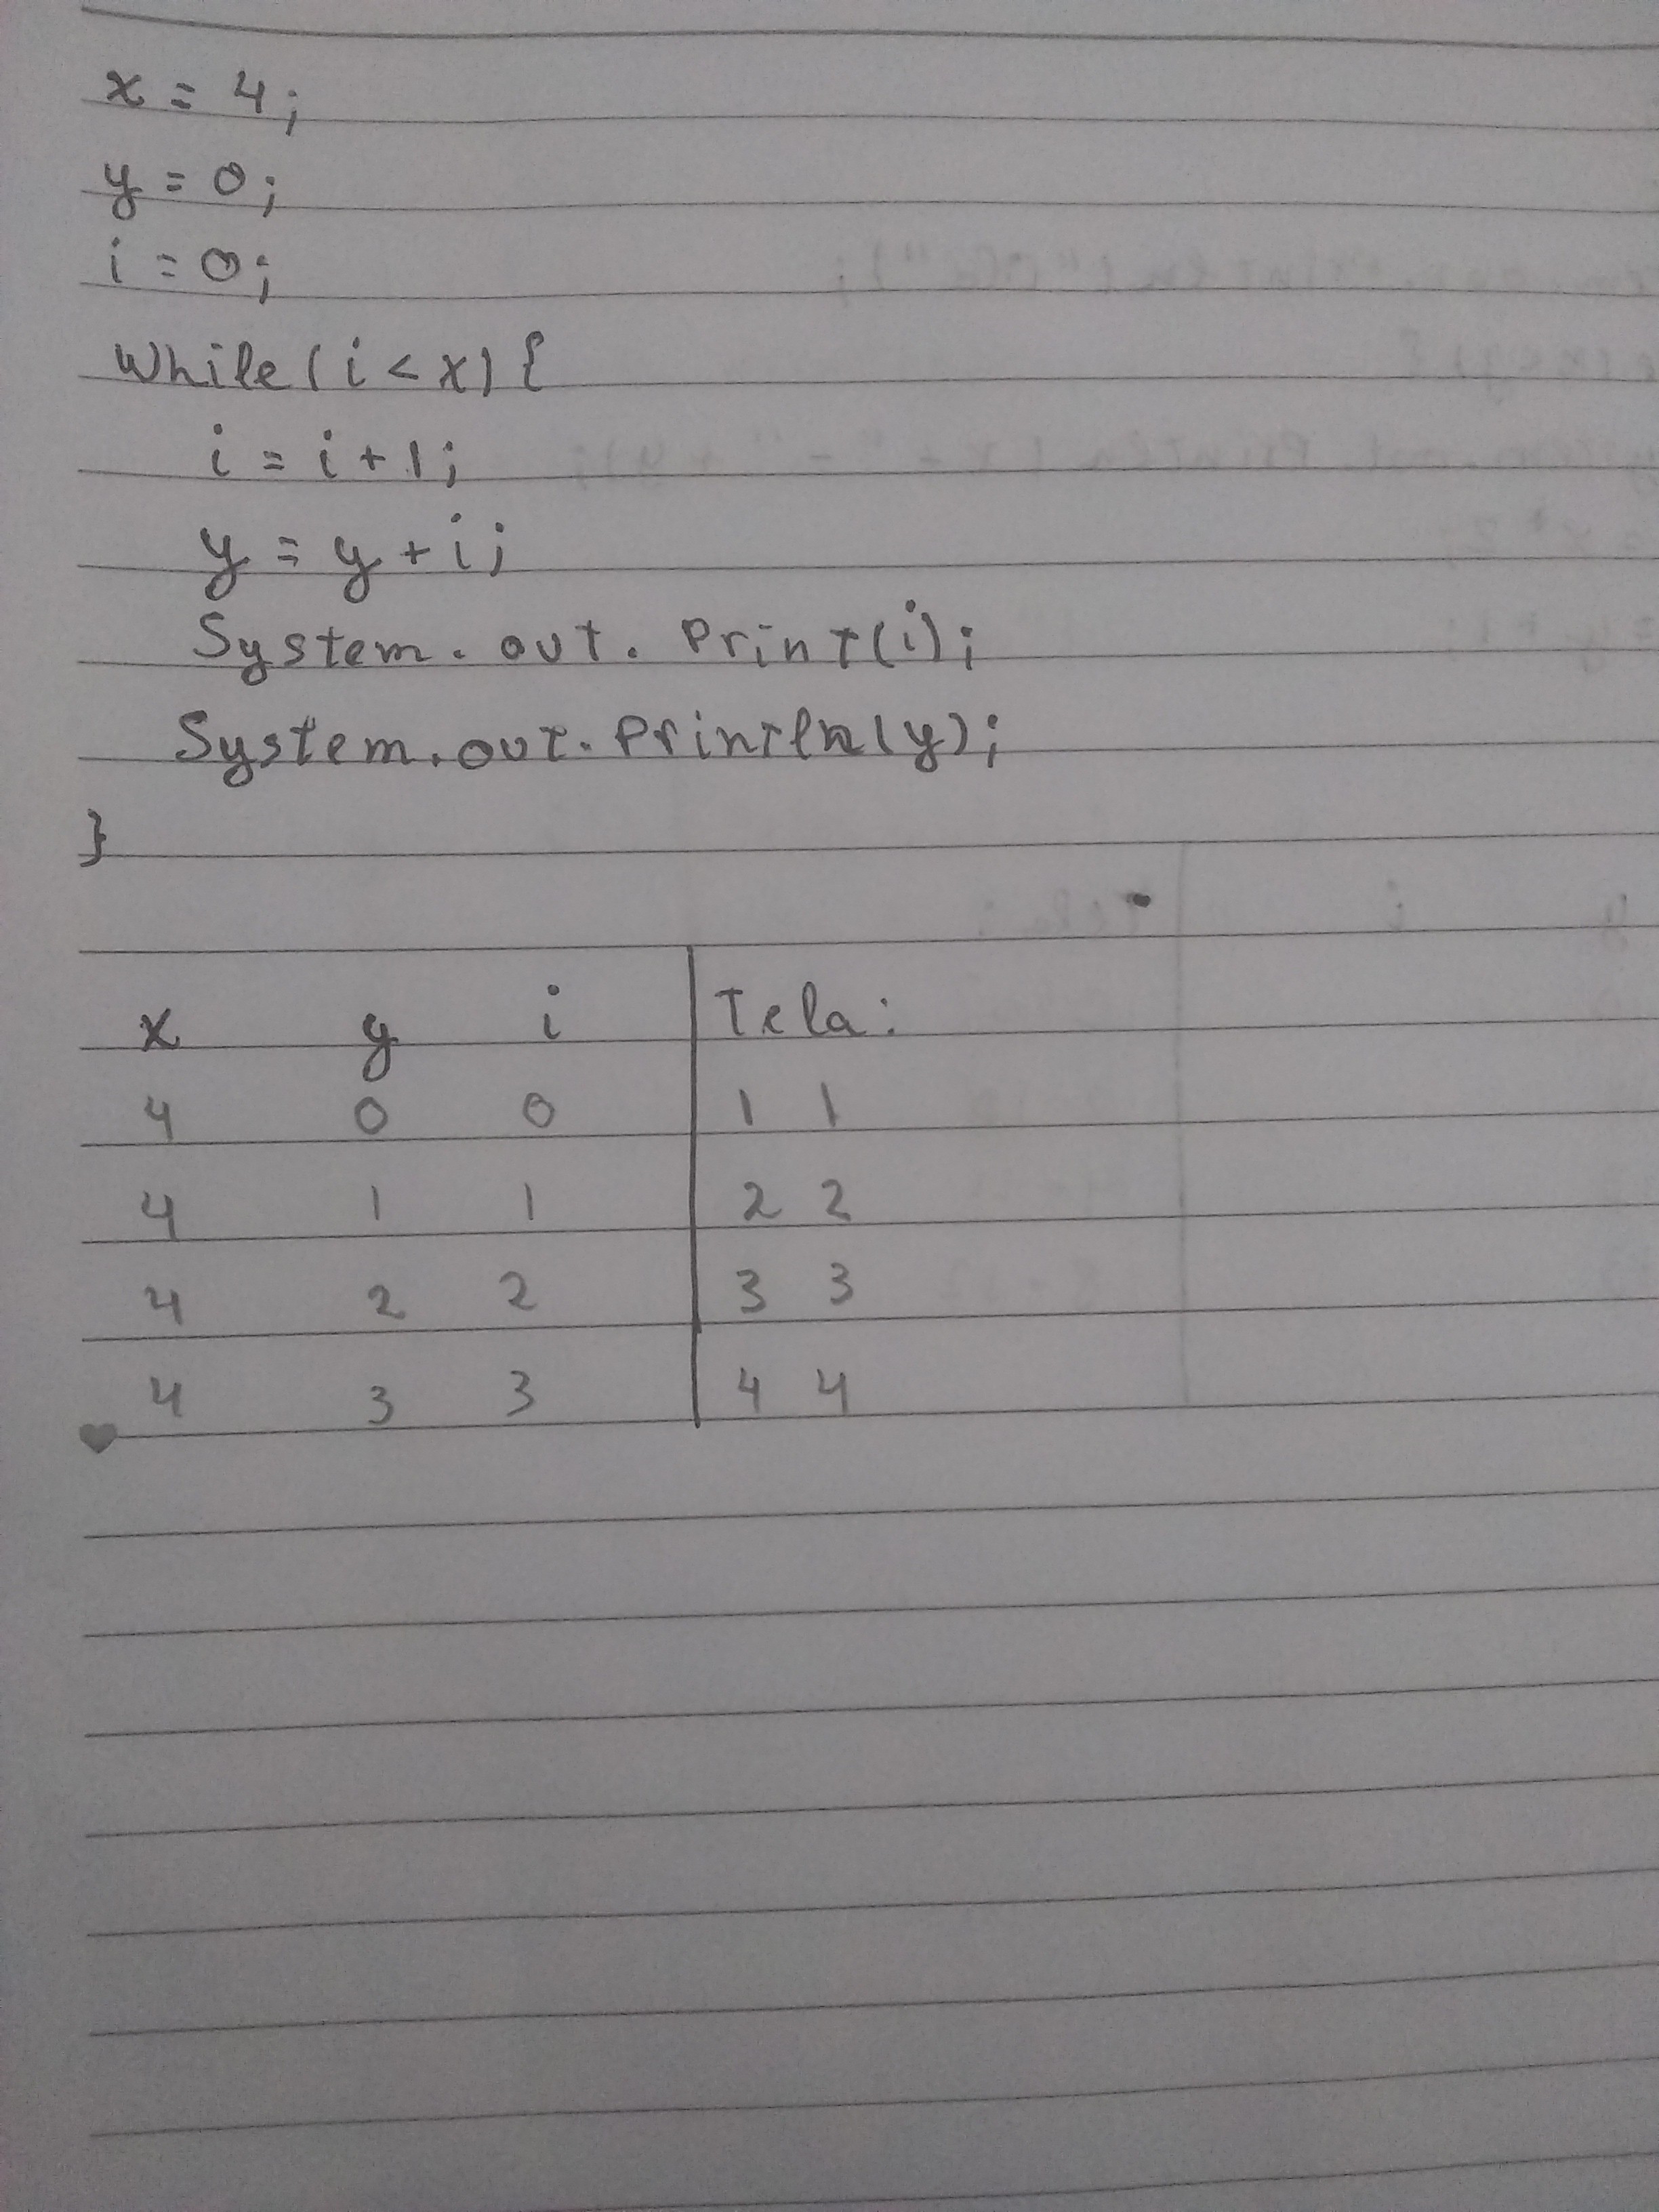 x = 4;
y = 0;
i = 0;
while(i < x){
i = i + 1;
y = y + i;
System.out.Print(i);
System.out.Println(y);
}
x y i Tela:
4 0 0 1 1
4 1 1 2 2
4 2 2 3 3
4 3 3 4 4